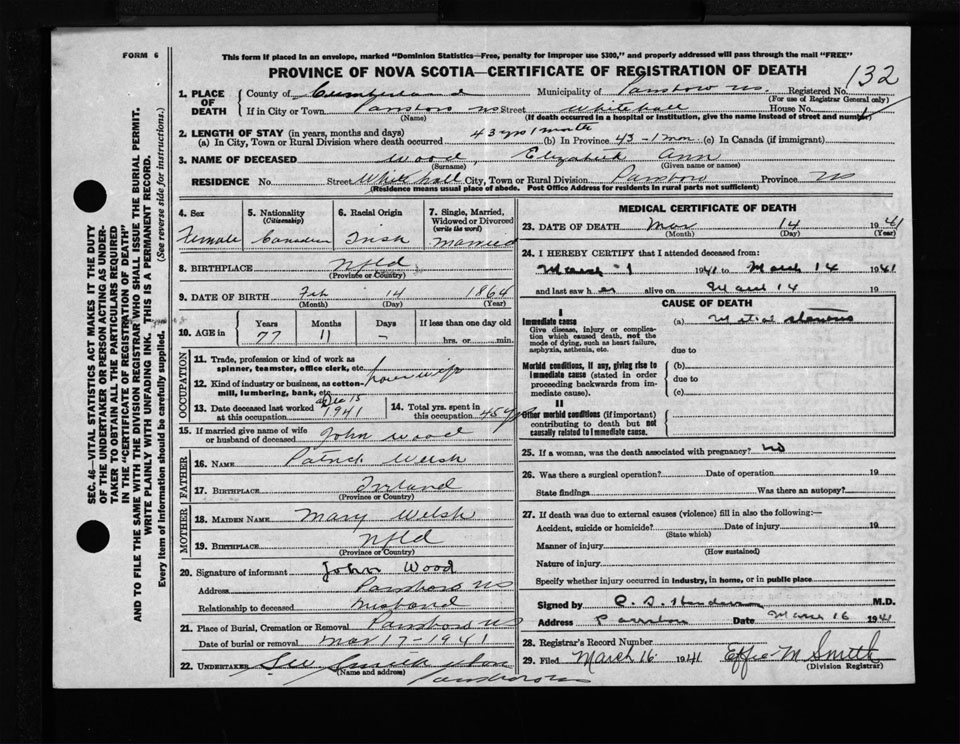 FORM 6
This form if placed in an envelope, marked "Dominion Statistics—Free, penalty for improper use $300," and properly addressed will pass through the mail "FREE"
PROVINCE OF NOVA SCOTIA—CERTIFICATE OF REGISTRATION OF DEATH
132
SEC. 46—VITAL STATISTICS ACT MAKES IT THE DUTY
OF THE UNDERTAKER OR PERSON ACTING AS UNDER-
TAKER TO OBTAIN ALL THE PARTICULARS REQUIRED
IN THE "CERTIFICATE OF REGISTRATION OF DEATH"
AND TO FILE THE SAME WITH THE DIVISION REGISTRAR WHO SHALL ISSUE THE BURIAL PERMIT.
WRITE PLAINLY WITH UNFADING INK. THIS IS A PERMANENT RECORD.
Every item of information should be carefully supplied. (See reverse side for instructions.)
1. PLACE OF DEATH County of Cumberland Municipality of Parsboro NS Registered No.
(For use of Registrar General only)
If in City or Town Parsboro NS Street Whitehall House No.
(Name) (If death occurred in a hospital or institution, give the name instead of street and number)
2. LENGTH OF STAY (in years, months and days)
(a) In City, Town or Rural Division where death occurred 43 yrs 1 month (b) In Province 43 - 1 mon. (c) In Canada (if immigrant)
3. NAME OF DECEASED Wood, Elizabeth Ann
(Surname) (Given name or names)
RESIDENCE No. Street Whitehall City, Town or Rural Division Parsboro Province NS
(Residence means usual place of abode. Post Office Address for residents in rural parts not sufficient)
4. Sex Female
5. Nationality (Citizenship) Canadian
6. Racial Origin Irish
7. Single, Married, Widowed or Divorced (write the word) Married
8. BIRTHPLACE Nfld
(Province or Country)
9. DATE OF BIRTH Feb 14 1864
(Month) (Day) (Year)
10. AGE in Years 77 Months 11 Days - If less than one day old
hrs. or min.
OCCUPATION
11. Trade, profession or kind of work as spinner, teamster, office clerk, etc. housewife
12. Kind of industry or business, as cotton-mill, lumbering, bank, etc.
13. Date deceased last worked at this occupation Dec 15 1941
14. Total yrs. spent in this occupation 45 y
15. If married give name of wife or husband of deceased John Wood
FATHER
16. NAME Patrick Welsh
17. BIRTHPLACE Irland
(Province or Country)
MOTHER
18. MAIDEN NAME Mary Welsh
19. BIRTHPLACE Nfld
(Province or Country)
20. Signature of informant John Wood
Address Parsboro NS
Relationship to deceased Husband
21. Place of Burial, Cremation or Removal Parsboro NS
Date of burial or removal Mar 17 - 1941
22. UNDERTAKER Smith
(Name and address)
MEDICAL CERTIFICATE OF DEATH
23. DATE OF DEATH Mar 14 1941
(Month) (Day) (Year)
24. I HEREBY CERTIFY that I attended deceased from:
March 1 1941 to March 14 1941
and last saw her alive on March 14 19
CAUSE OF DEATH
I
Immediate cause (a) Mitral stenosis
Give disease, injury or complication which caused death, not the mode of dying, such as heart failure, asphyxia, asthenia, etc.
due to
Morbid conditions, if any, giving rise to immediate cause (stated in order proceeding backwards from immediate cause).
(b)
due to
(c)
II
Other morbid conditions (if important) contributing to death but not causally related to immediate cause.
25. If a woman, was the death associated with pregnancy? No
26. Was there a surgical operation? Date of operation 19
State findings Was there an autopsy?
27. If death was due to external causes (violence) fill in also the following:—
Accident, suicide or homicide? Date of injury 19
(State which)
Manner of injury
(How sustained)
Nature of injury
Specify whether injury occurred in industry, in home, or in public place
Signed by M.D.
Address Parrsboro Date March 16 1941
28. Registrar's Record Number
29. Filed March 16 1941 Effie M Smith
(Division Registrar)